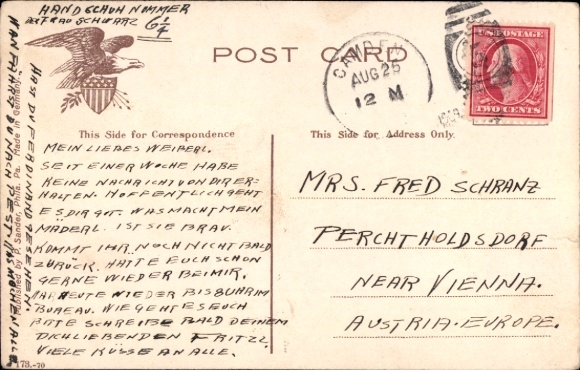 HANDSCHUH NUMMER
DER FRAU SCHWARZ 6 1/4
POST CARD
CAMDEN
AUG 25
12 M
U.S. POSTAGE
TWO CENTS
This Side for Correspondence
This Side for Address Only.
MEIN LIEBES WEIBERL.
SEIT EINER WOCHE HABE
KEINE NACHRICHT VON DIR ER-
HALTEN. HOFFENTLICH GEHT
ES DIR GUT. WAS MACHT MEIN
MÄDERL. IST SIE BRAV.
KOMMT IHR NOCH NICHT BALD
ZURÜCK. HÄTTE EUCH SCHON
GERNE WIEDER BEI MIR.
WAR HEUTE WIEDER BIS 8 UHR IM
BUREAU. WIE GEHT ES EUCH
BITTE SCHREIBE BALD DEINEM
DICH LIEBENDEN FRITZL.
VIELE KÜSSE AN ALLE.
MRS. FRED SCHRANZ
PERCHTHOLDSDORF
NEAR VIENNA.
AUSTRIA-EUROPE.
HAST DU FERDINAND GESEHEN.
WAN FÄHRST DU NACH PEST WAS MACHEN ALLE
Published by P. Sander, Phila. Pa. Made in Germany.
173.-70